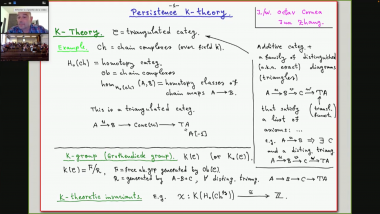 -1-
Persistence K-theory.
J./w. Octav Cornea
Jun Zhang.
K-Theory. C = triangulated categ.
Example. Ch = chain complexes (over field k).
H₀(Ch) = homotopy categ.
Ob = chain complexes
hom_{H₀(Ch)}(A,B) = homotopy classes of
chain maps A → B.
This is a triangulated categ.
A → B → Cone(u) → TA
A[-1]
Additive categ +
a family of distinguished
(a.k.a. exact) diagrams
(triangles)
A → B → C → TA
that satisfy
a list of
axioms: ...
e.g. A → B ⇒ ∃ C
and a disting. triang.
A → B → C → TA
K-group (Grothendieck group). K(C) (or K₀(C)).
K(C) = F/R, F = free ab. grp generated by Ob(C).
R = generated by A-B+C, ∀ disting. triang. A → B → C → TA
K-theoretic invariants. e.g. χ : K(H₀(Ch^{fg})) → ℤ.